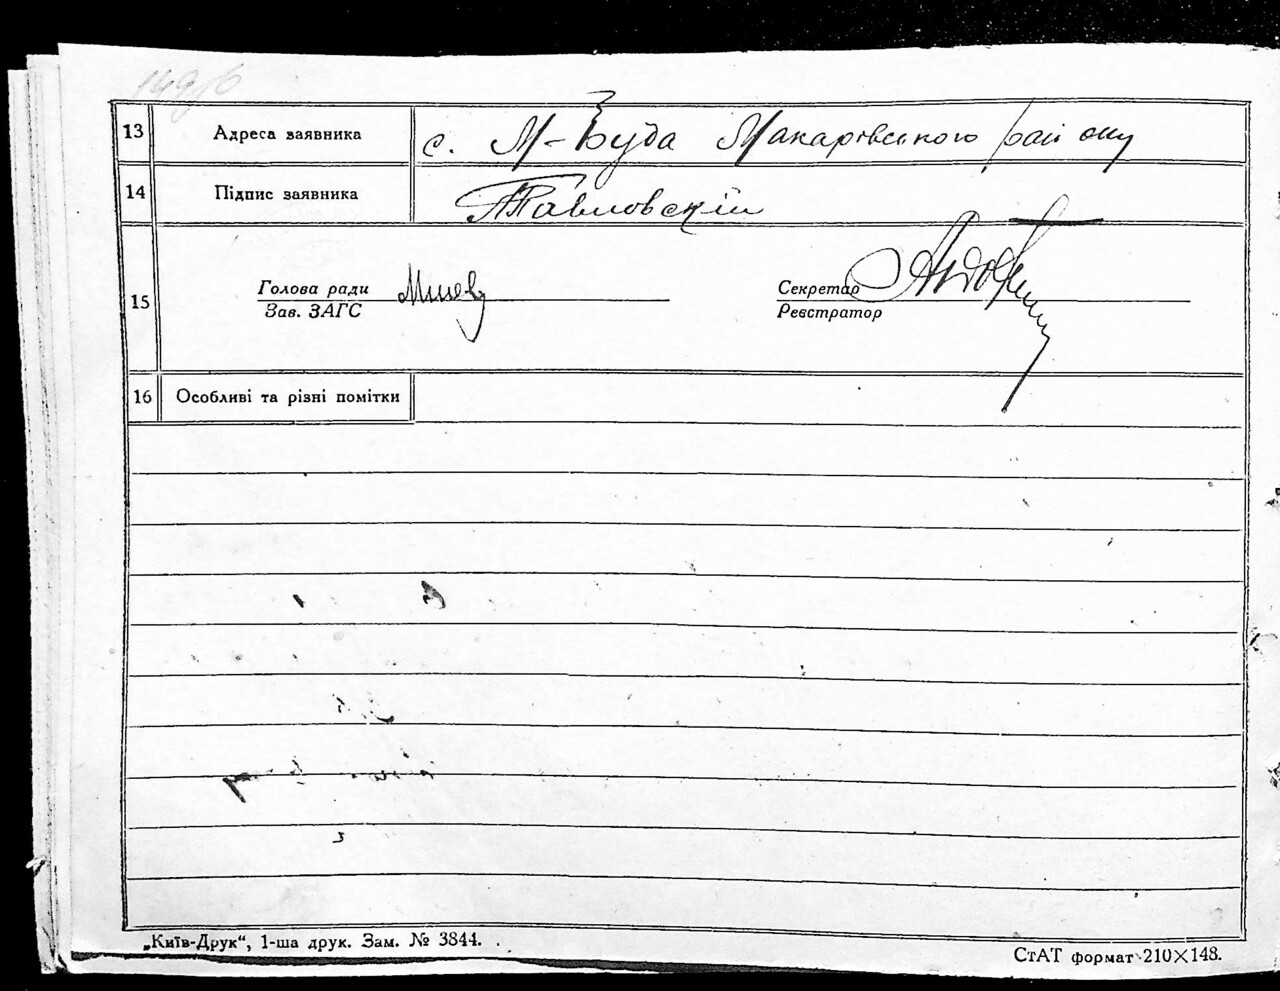 149об
13 Адреса заявника с. М-Буда Макарівського району
14 Підпис заявника Павловскій
15 Голова ради
Зав. ЗАГС
Секретар
Реєстратор
16 Особливі та різні помітки
„Київ-Друк“, 1-ша друк. Зам. № 3844.
СтАТ формат 210×148.